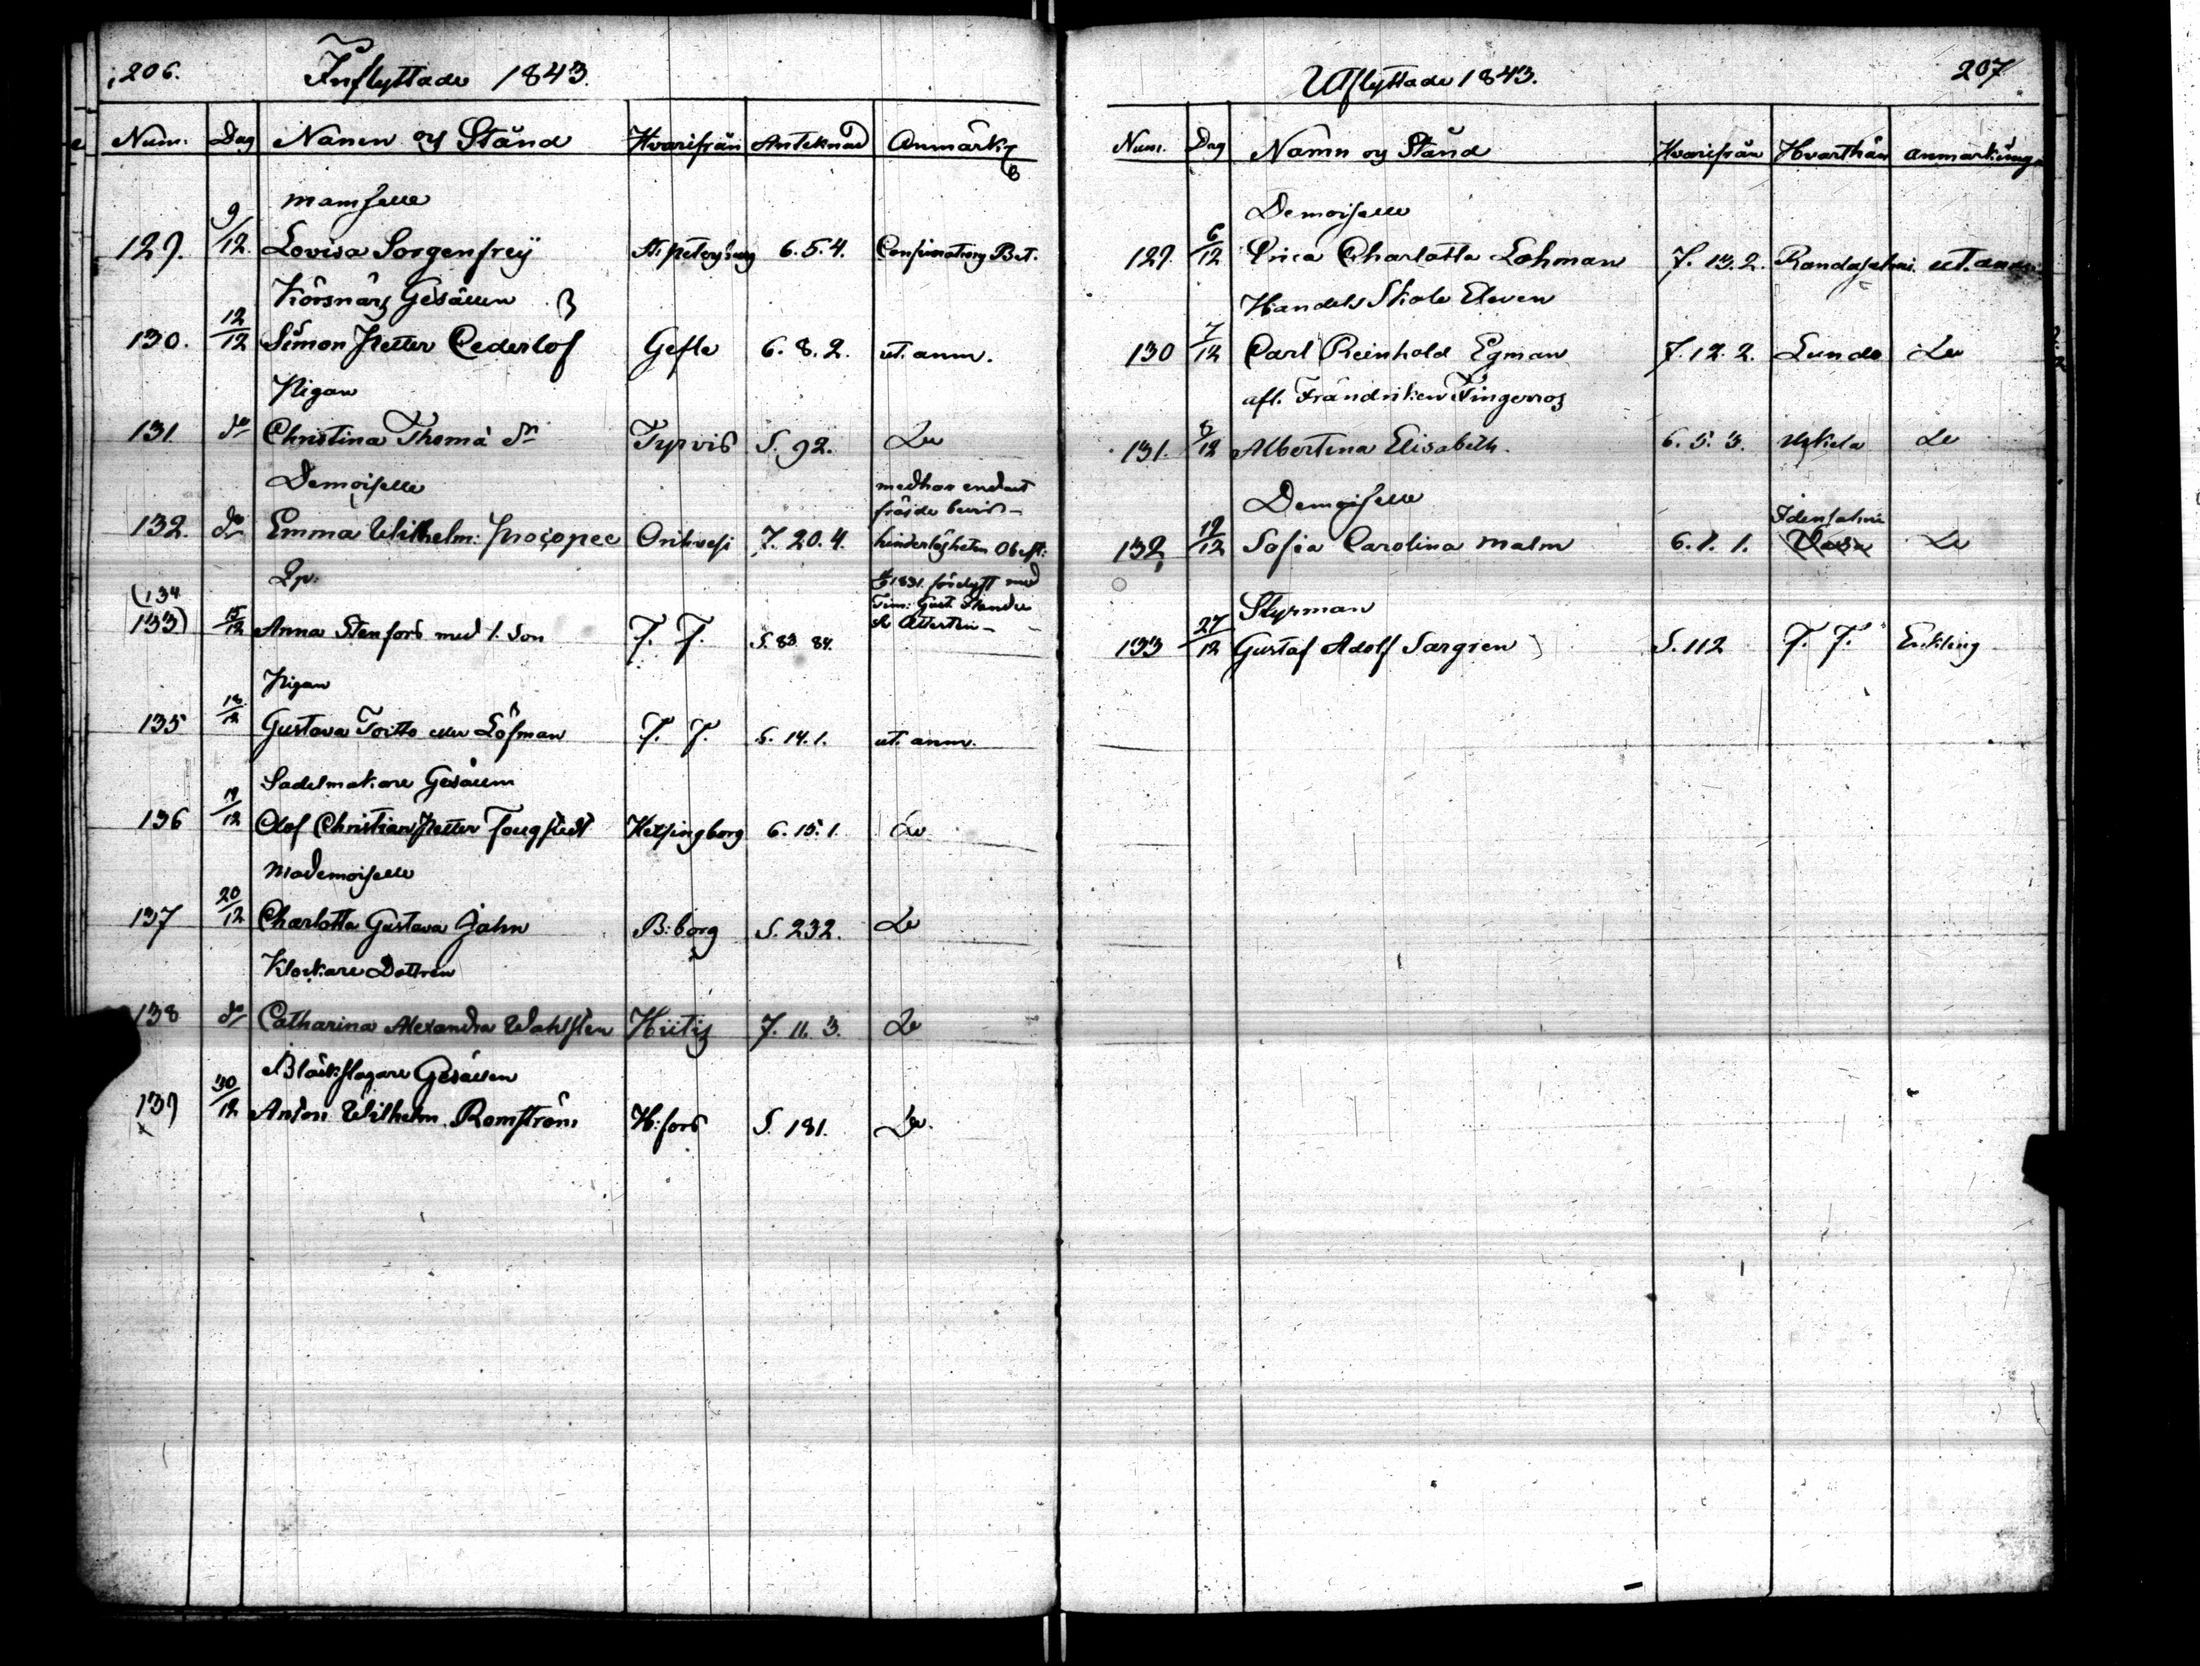 206.
Inflyttade 1843.
Num. Dag Namn og Stånd Hvarifrån Anteknad Anmärk
Mamselle
129. 9/12 Lovisa Sorgenfrey St. Petersburg 6. 5. 4. Confirmations Bet.
Körsnärs Gesällen
130. 12/12 Simon Petter Cederlöf Gefle 6. 8. 2. ut. anm.
Pigan
131 do Christina Thoma dr Tyrvis S. 92. Do
Demoiselle
132. do Emma Wilhelm: Procopee Orihvesi 7. 20. 4. medhar endast
hinderlösheten
Qp.
(134
133) 15/12 Anna Stenfors med 1. Son F. F. S. 83 84. 1831
Pigan
135 18/12 Gustava Toitto eller Löfman F. F. S. 14. 1. ut. anm.
Sadelmakare Gesällen
136 19/12 Olof Christian Petter Fougstedt Helsingborg 6. 15. 1. Do
Mademoiselle
137 20/12 Charlotta Gustava Jahn B:borg S. 232. Do
Klockare Dottren
138 do Catharina Alexandra Wahlsten Hiitis 7. 11. 3. Do
Bläckslagare Gesällen
139 30/12 Anton Wilhelm Romström H:fors S. 181. Do.
207
Utflyttade 1843.
Num. Dag Namn og Stånd Hvarifrån Hvarthän anmärkning
Demoiselle
129. 6/12 Erica Charlotta Lohman 7. 13. 2. Randasalmi ut. anm.
Handels Skole Eleven
130 7/12 Carl Reinhold Egman 7. 12. 2. Lundo Do
afl. Frändriken Fingerroos
131. 8/12 Albertina Elisabeth. 6. 5. 3. Uskela Do
Demoiselle
Idensalmi
132 19/12 Sofia Carolina Malm 6. 1. 1. Do
Styrman
133 27/12 Gustaf Adolf Sargien S. 112 F. F. Enkling